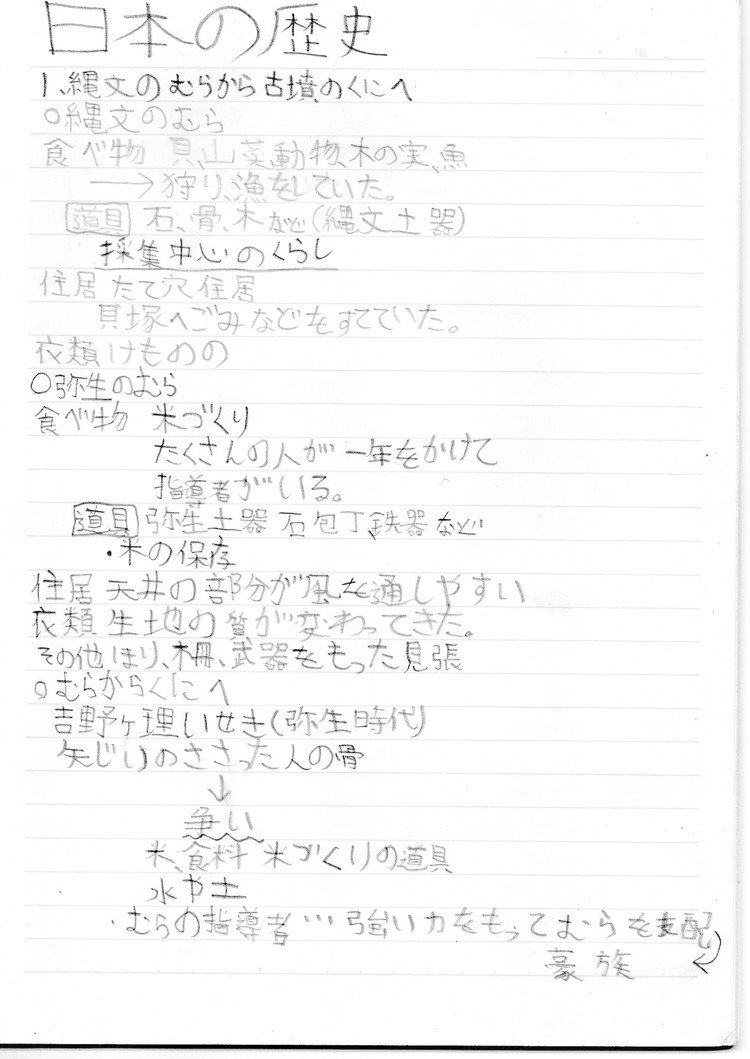 日本の歴史
1、縄文のむらから古墳のくにへ
○縄文のむら
食べ物 貝、山菜、動物、木の実、魚
→狩り、漁をしていた。
道具 石、骨、木など(縄文土器)
採集中心のくらし
住居 たて穴住居
貝塚へごみなどをすてていた。
衣類 けものの
○弥生のむら
食べ物 米づくり
たくさんの人が一年をかけて
指導者がいる。
道具 弥生土器 石包丁、鉄器など
・米の保存
住居 天井の部分が風を通しやすい
衣類 生地の質が変わってきた。
その他 ほり、木冊、武器をもった見張
○むらからくにへ
吉野ヶ理いせき(弥生時代)
矢じりのささった人の骨
↓
争い
米、食料 米づくりの道具
水や土
・むらの指導者…強い力をもってむらを支配
豪族